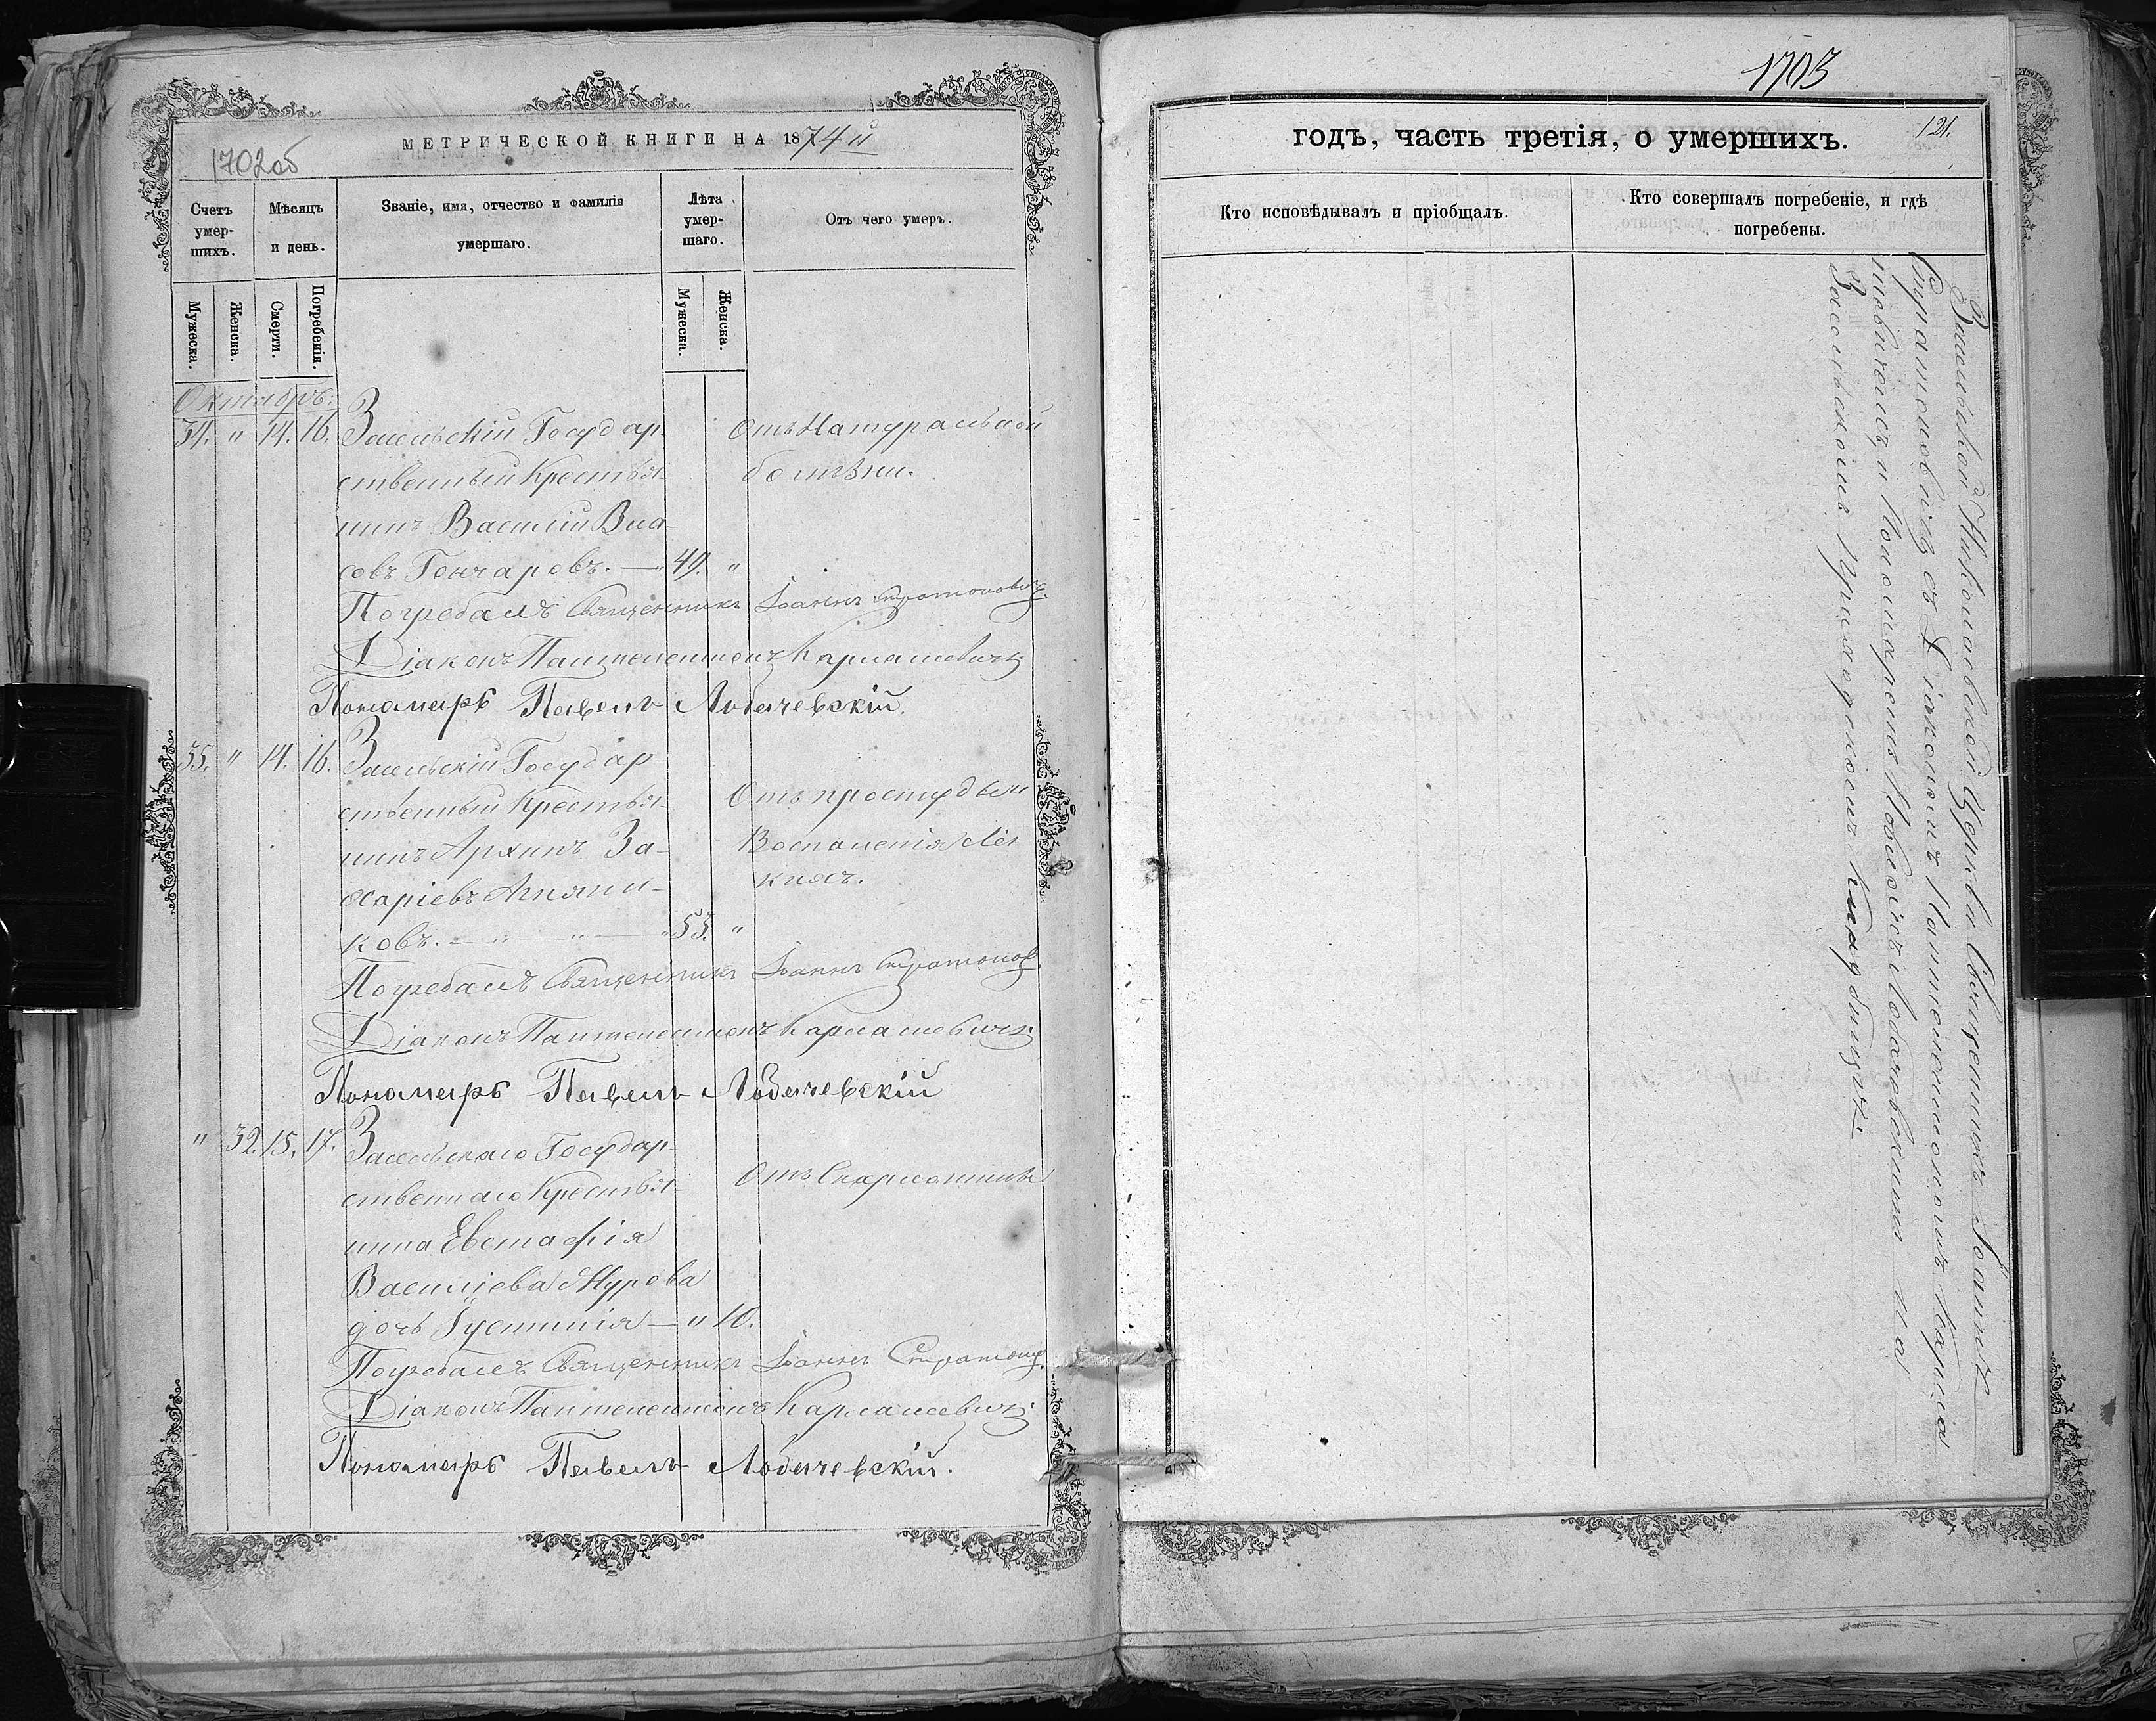 1702об
МЕТРИЧЕСКОЙ КНИГИ НА 1874й
Счетъ умер-шихъ.
Мѣсяцъ и день.
Званіе, имя, отчество и фамилія умершаго.
Лѣта умер-шаго.
Отъ чего умеръ.
Мужеска.
Женска.
Смерти.
Погребенія.
Мужеска.
Женска.
Октябрь:
34. " 14. 16. Засельскій Государ- Отъ Натуральной
ственный Крестья- болѣзни.
нинъ Василій Вла-
совъ Гончаровъ. — 49. "
Погребалъ Священникъ Іоаннъ Стратоновичъ
Діаконъ Пантелеимонъ Кармашевичъ
Пономарь Павелъ Лобачевскій.
35. " 14. 16. Засельскій Государ-
ственный Крестья- Отъ простуды и
нинъ Архипъ За- Воспаленія Лег
харіевъ кихъ.
ковъ. — " — " — 53. "
Погребалъ Священникъ Іоаннъ Стратонов
Діаконъ Пантелеимонъ Кармашевичъ
Пономарь Павелъ Лобачевскій
" 32. 15. 17. Засельскаго Государ-
ственнаго Крестья- Отъ Скарлатины
нина Евстафія
Василіева Мурова
дочь Іустинія — " 10.
Погребалъ Священникъ Іоаннъ Стратонов
Діаконъ Пантелеимонъ Кармашевичъ
Пономарь Павелъ Лобачевскій.
1703
121.
годъ, часть третія, о умершихъ.
Кто исповѣдывалъ и пріобщалъ.
Кто совершалъ погребеніе, и гдѣ погребены.
Засельской Николаевской Церкви Священникъ Іоаннъ
Стратоновичъ съ Діакономъ Пантелеимономъ Карма
шевичемъ и Пономаремъ Павломъ Лобачевскимъ на
Засельскомъ приходскомъ кладбищѣ.